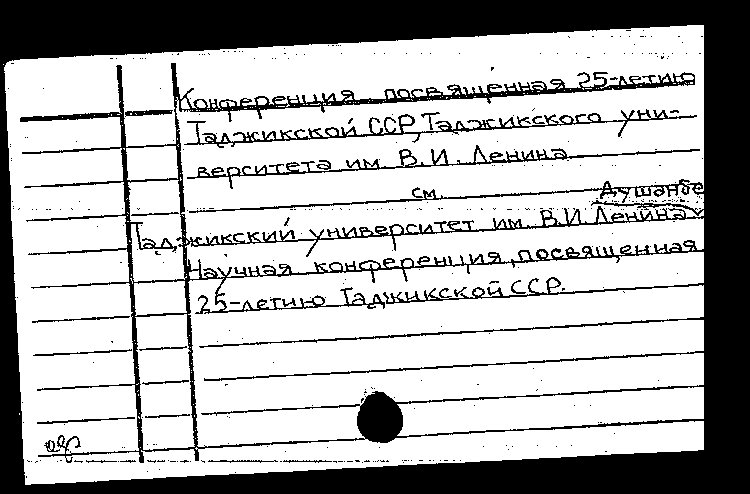 Конференция посвященная 25-летию
Таджикской ССР, Таджикского уни-
верситета им. В.И. Ленина
см.
Душанбе
Таджикский университет им. В.И Ленина
Научная конференция, посвященная
25-летию Таджикской ССР.